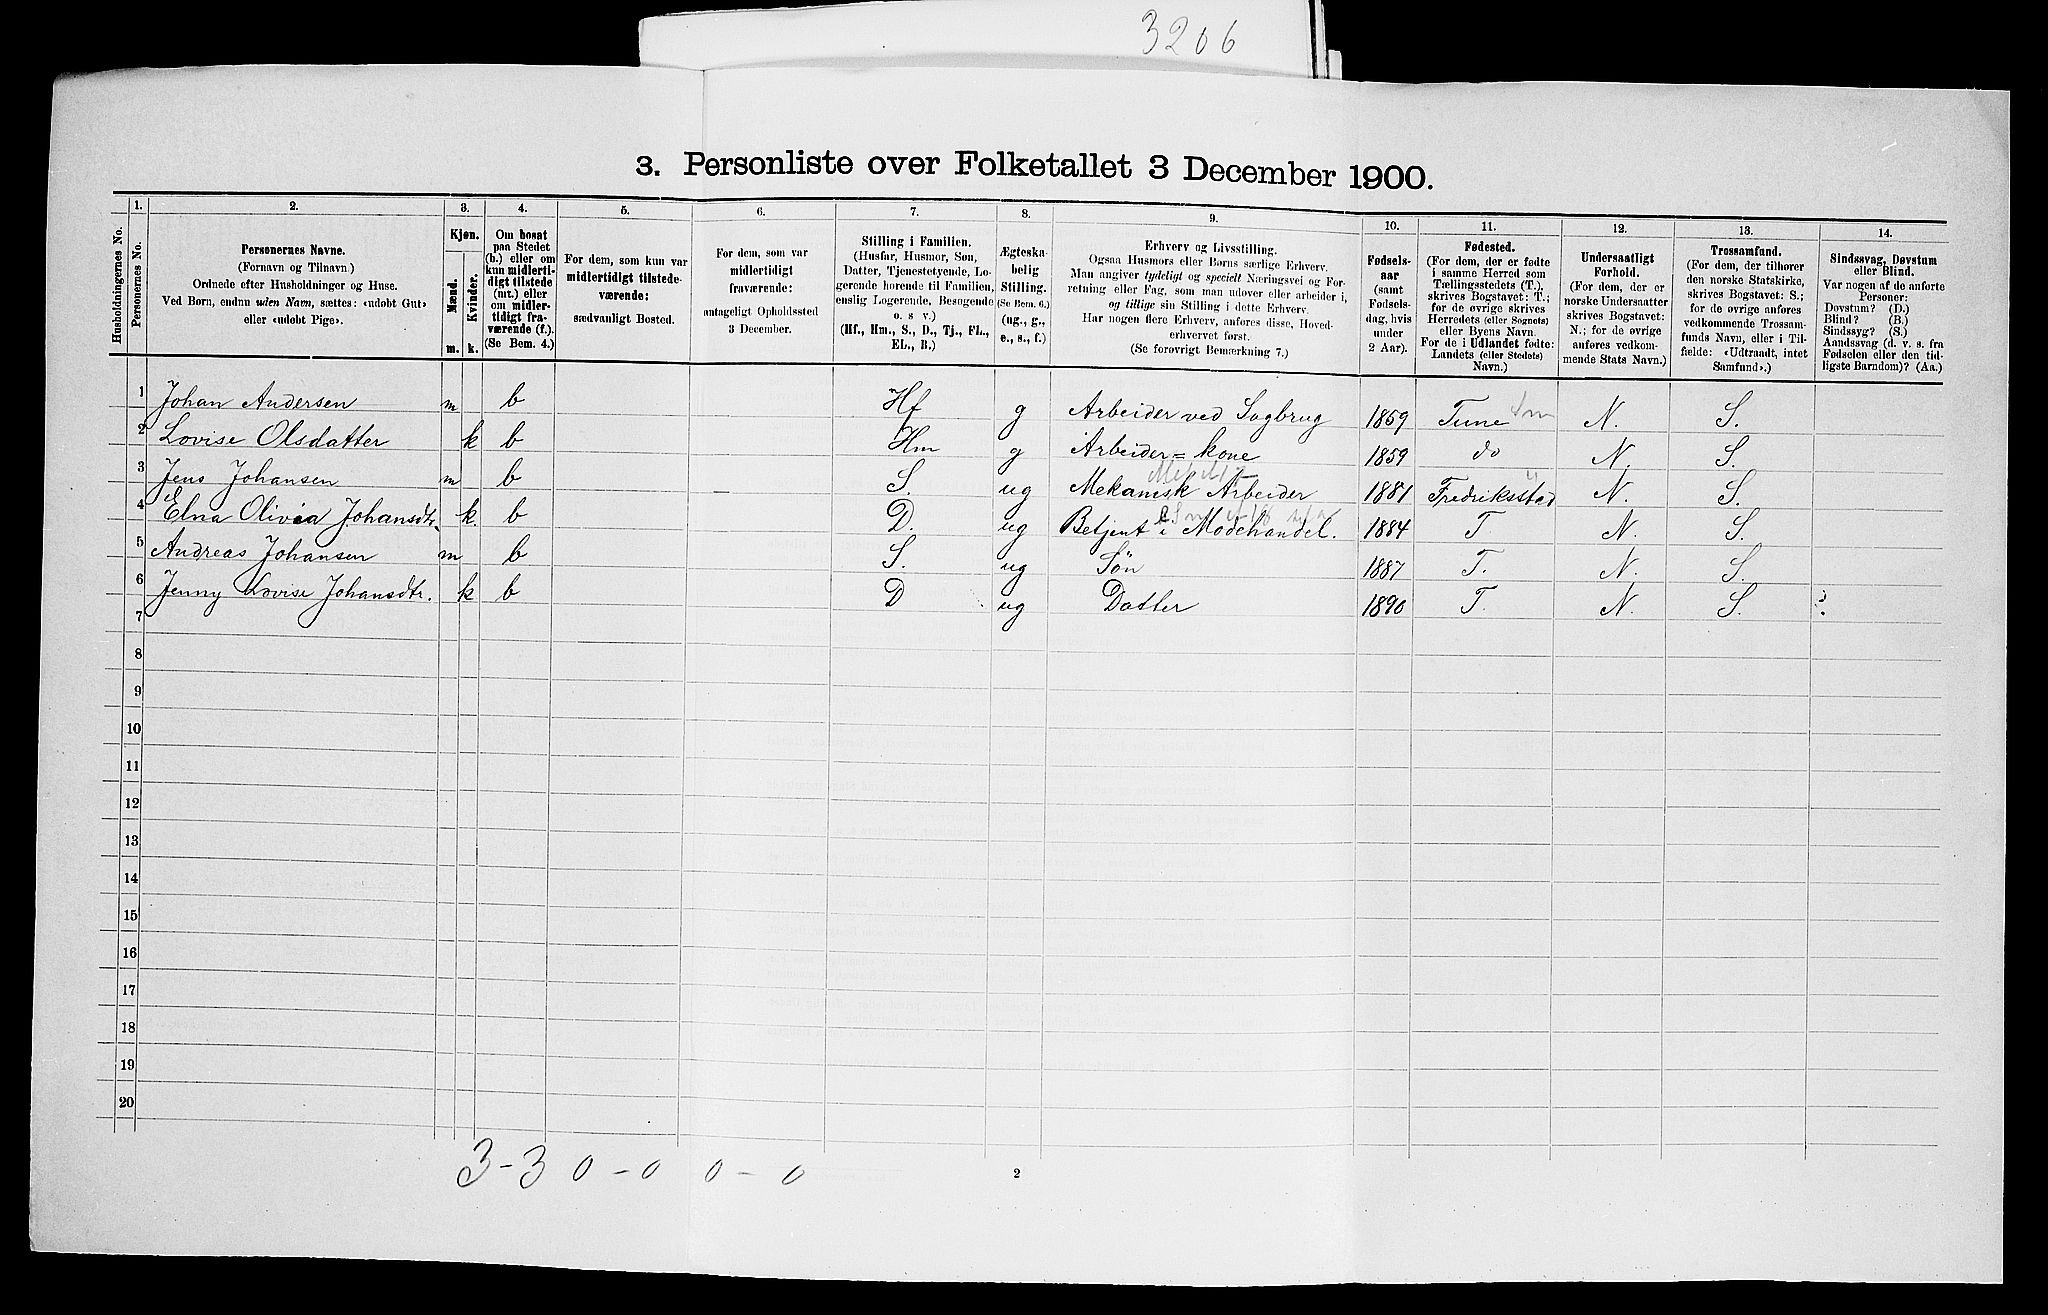 3206
3. Personliste over Folketallet 3 December 1900.
1. 2. 3. 4. 5. 6. 7. 8. 9. 10. 11. 12. 13. 14.
Husholdningernes No.
Personernes No.
Personernes Navne.
(Fornavn og Tilnavn.)
Ordnede efter Husholdninger og Huse.
Ved Børn, endnu uden Navn, sættes: «udøbt Gut»
eller «udøbt Pige».
Kjøn.
Mænd.
Kvinder.
m. k.
Om bosat
paa Stedet
(b.) eller om
kun midlerti-
digt tilstede
(mt.) eller
om midler-
tidigt fra-
værende (f.).
(Se Bem. 4.)
For dem, som kun var
midlertidigt tilstede-
værende:
sædvanligt Bosted.
For dem, som var
midlertidigt
fraværende:
antageligt Opholdssted
3 December.
Stilling i Familien.
(Husfar, Husmor, Søn,
Datter, Tjenestetyende, Lo-
gerende hørende til Familien,
enslig Logerende, Besøgende
o. s. v.)
(Hf., Hm., S., D., Tj., FL.,
EL., B.)
Ægteska-
belig
Stilling.
(Se Bem. 6.)
(ug., g.,
e., s., f.)
Erhverv og Livsstilling.
Ogsaa Husmors eller Børns særlige Erhverv.
Man angiver tydeligt og specielt Næringsvei og For-
retning eller Fag, som man udøver eller arbeider i,
og tillige sin Stilling i dette Erhverv.
Har nogen flere Erhverv, anføres disse, Hoved-
erhvervet først.
(Se forøvrigt Bemærkning 7.)
Fødsels-
aar
(samt
Fødsels-
dag, hvis
under
2 Aar).
Fødested.
(For dem, der er fødte
i samme Herred som
Tællingsstedets (T.),
skrives Bogstavet: T.;
for de øvrige skrives
Herredets (eller Sognets)
eller Byens Navn.
For de i Udlandet fødte:
Landets (eller Stedets)
Navn.)
Undersaatligt
Forhold.
(For dem, der er
norske Undersaatter
skrives Bogstavet:
N.; for de øvrige
anføres vedkom-
mende Stats Navn.)
Trossamfund.
(For dem, der tilhører
den norske Statskirke,
skrives Bogstavet: S.;
for de øvrige anføres
vedkommende Trossam-
funds Navn, eller i Til-
fælde: «Udtraadt, intet
Samfund».)
Sindssvag, Døvstum
eller Blind.
Var nogen af de anførte
Personer:
Døvstum? (D.)
Blind? (B.)
Sindssyg? (S.)
Aandssvag (d. v. s. fra
Fødselen eller den tid-
ligste Barndom)? (Aa.)
1 Johan Andersen m b Hf g Arbeider ved Sagbrug 1859 Tune N. S.
2 Lovise Olsdatter k b Hm g Arbeider = kone 1859 do N. S.
3 Jens Johansen m b S. ug Mekanisk Arbeider 1881 Fredriksstad N. S.
4 Elna Olivia Johansdtr. k. b D. ug Betjent i Modehandel. 1884 T N. S.
5 Andreas Johansen m b S. ug Søn 1887 T. N. S.
6 Jenny Lovise Johansdtr. k b D ug Datter 1890 T N. S.
7
8
9
10
11
12
13
14
15
16
17
18
19
20
3-3 0-0 0-0
2